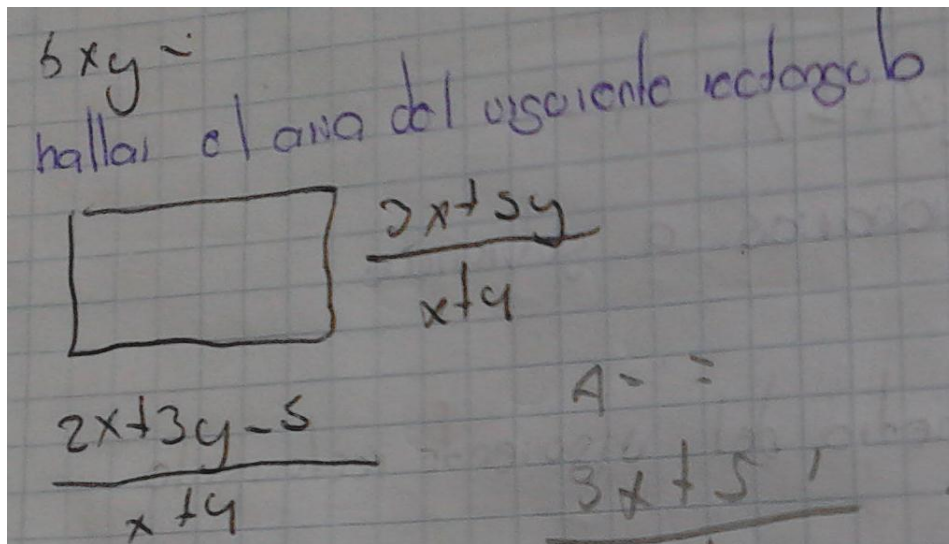 6xy =
hallar el area del siguiente rectangulo
3x+5y
x+y
A = =
2x+3y-5
x+y
3x+5